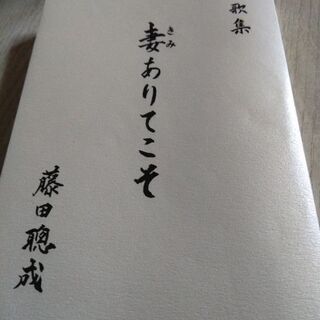 歌集
妻ありてこそ
きみ
藤田聰成